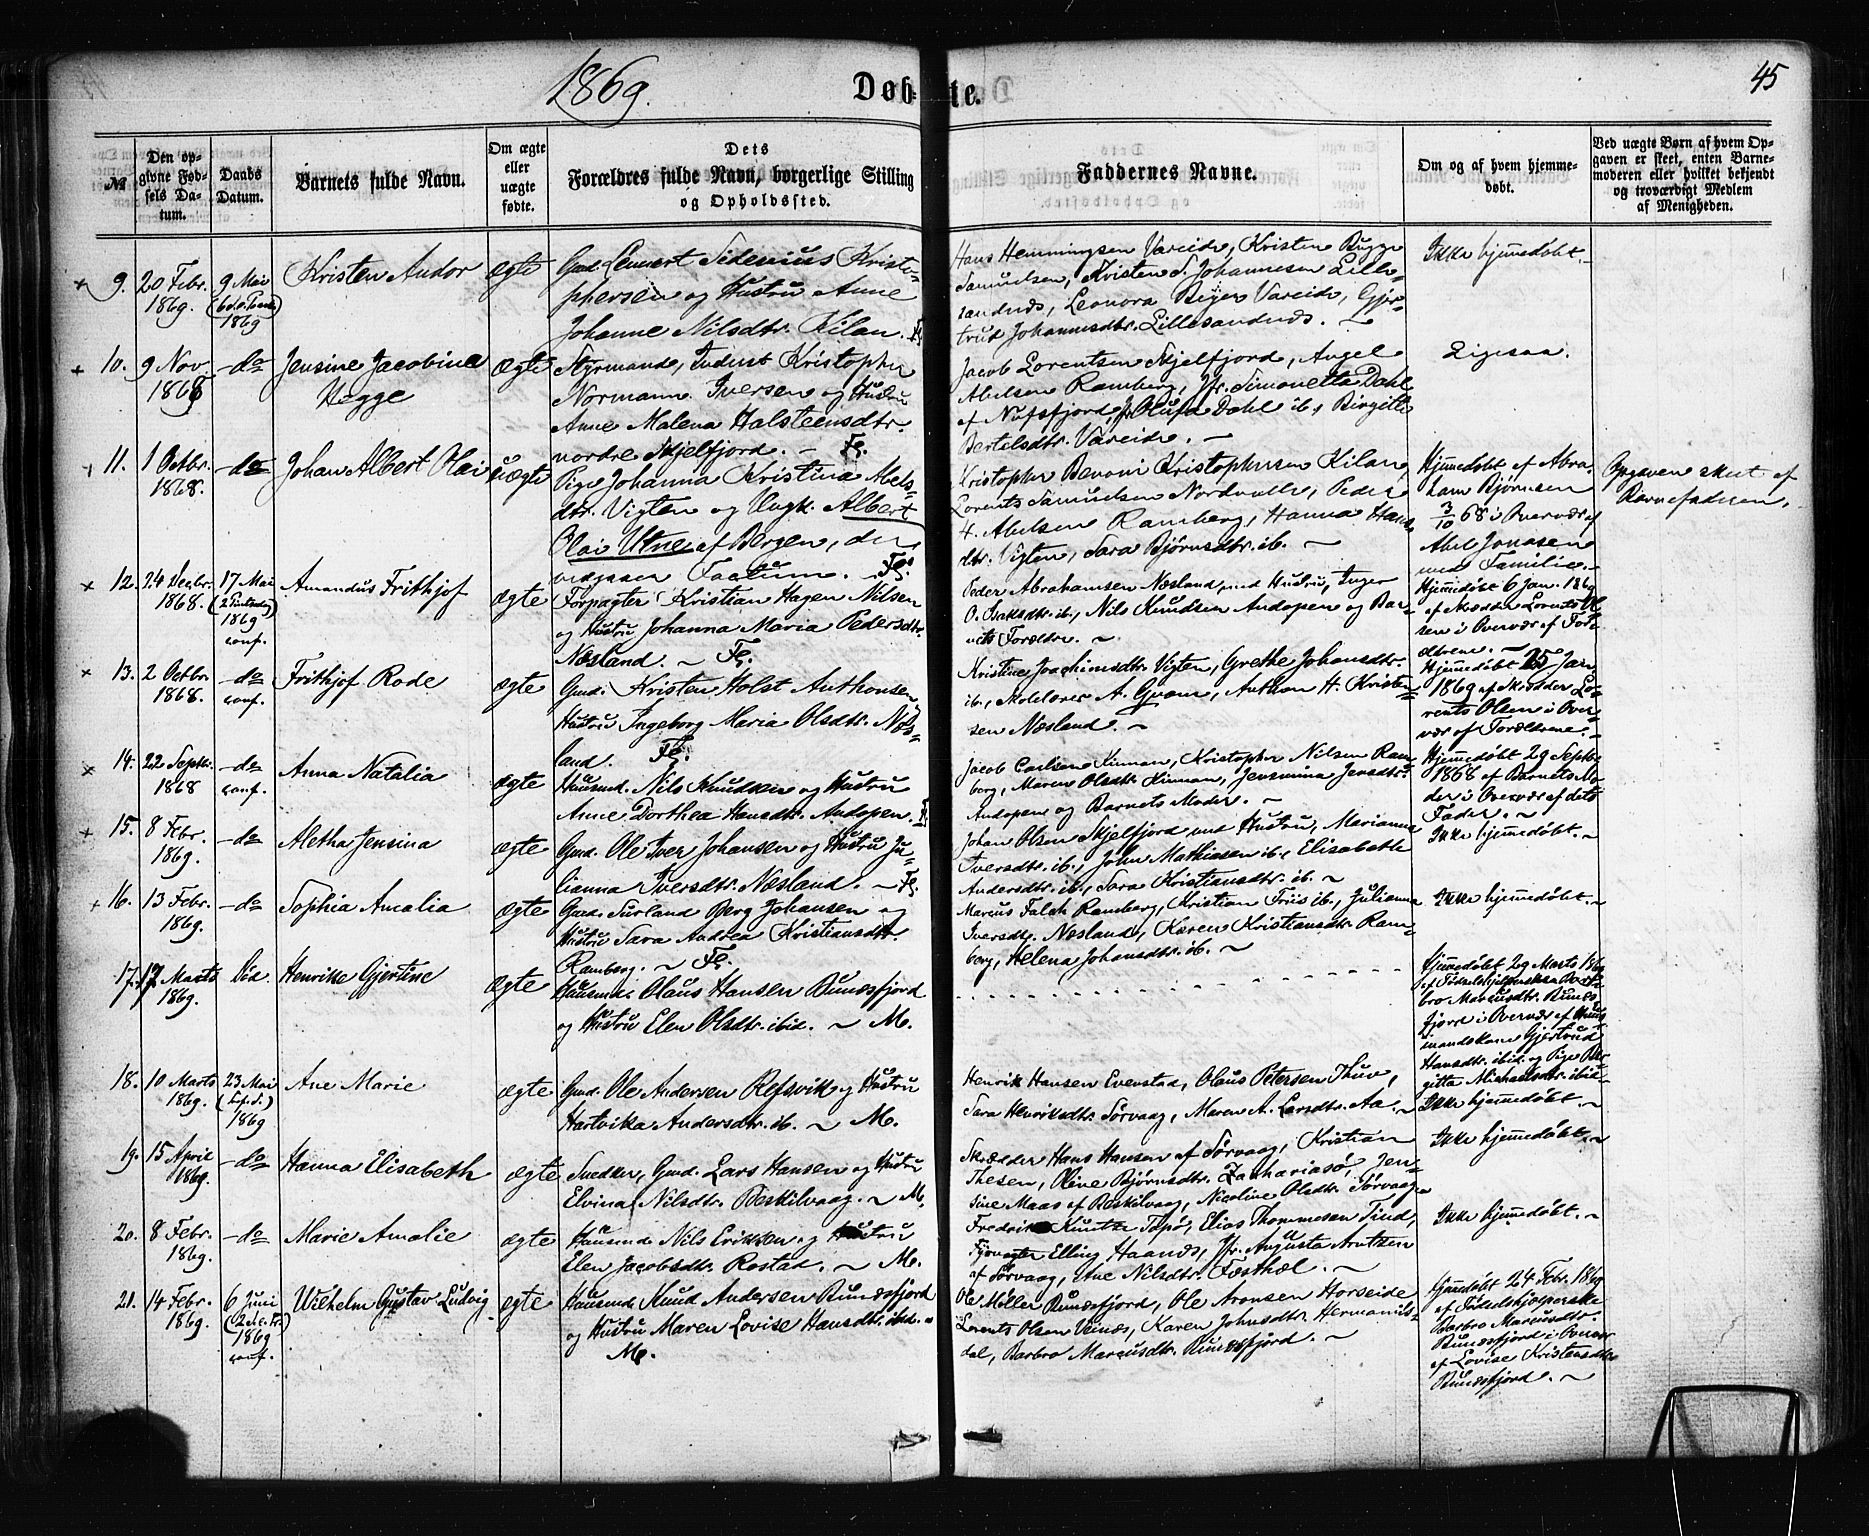 1869.
Døbte.
45
№
Den opgivne Fødsels Datum.
Daabs Datum.
Barnets fulde Navn.
Om ægte eller uægte fødte.
Dets Forældres fulde Navn, borgerlige Stilling og Opholdssted.
Faddernes Navne.
Om og af hvem hjemmedøbt.
Ved uægte Børn af hvem Opgaven er skeet, enten Barnemoderen eller hvilket bekjendt og troværdigt Medlem af Menigheden.
9. 20 Febr. 1869. 9 Mai 1869 Kristen Andor ægte
Gmd. Lennert Sidenius Kristo-
phersen og Hustru Anne
Johanne Nilsdtr. Kilan.
Hans Henningsen Vareide, Kristen Bugge
Samuelsen, Kristen S. Johannesen Lille-
sandnæs, Leonora Beyer Vareide, Gjer-
trud Johannesdtr. Lillesandnæs. ~
Ikke hjemmedøbt.
10. 9 Nov. 1868 - do Jensine Jacobine Hegge ægte
Styrmand, Inderst Kristopher
Normann Iversen og Hustru
Anne Malena Halsteensdtr.
nordre Skjelfjord. - Fl.
Jacob Lorentsen Skjelfjord, Angel
Abelsen Ramberg, Jfr. Simonetta Dahl
af Nufsfjord, Jfr. Olufa Dahl ib., Birgitte
Bertelsdtr. Vareide. ~
Ligesaa.
11. 1 Octbr. 1868. - do Johan Albert Olai uægte
Pige Johanna Kristina Abels-
dtr. Vigten og Ungk. Albert
Olai Utne af Bergen, den
Factum. Fl.
Kristopher Benoni Kristophersen Kilan,
Lorents Samuelsen Nordvalle, Peder
H. Abelsen Ramberg, Hanna Hans-
dtr. Vigten, Sara Bjørnsdtr. ib. ~
Hjemmedøbt af Abra-
ham Bjørnsen
3/10 68 i Overvær af
Abel Jonasen
med Familie. -
Opgaven skeet af
Barnefaderen.
12. 24 Decbr. 1868. 17 Mai (2 Pintsedag) 1869 conf. Amandus Frithjof ægte
Forpagter Kristian Hagen Nilsen
og Hustru Johanna Maria Pedersdtr.
Næsland. ~ Fl.
Peder Abrahamsen Næsland, med Hustru, Inger
O. Isaksdtr. ib., Nils Knudsen Andopen og Bar-
nets Forældre. ~
Hjemmedøbt 6 Jan. 1869
af Skrædder Lorents Ol-
sen i Overvær af Foræl-
drene. ~
13. 2 Octbr. 1868. - do conf. Frithjof Rode ægte
Gmd. Kristen Holst Anthonsen,
Hustru Ingeborg Maria Olsdtr. Næs-
land. Fl.
Kristine Joachimsdtr. Vigten, Grethe Johansdtr.
ib., Skolelærer A. Gvam, Anthon H. Kristen-
sen Næsland. ~
Hjemmedøbt 25 Jan.
1869 af Skrædder Lo-
rents Olsen i Over-
vær af Forældrene. ~
14. 22 Septbr. 1868 - do conf. Anna Natalia ægte
Huusmd. Nils Knudsen og Hustru
Anne Dorthea Hansdtr. Andopen.
Jacob Carlsen Finman, Kristopher Nilsen Ram-
berg, Maren Olsdtr. Finman, Jensmina Jensdtr.
Andopen og Barnets Moder. ~
Hjemmedøbt 29 Septbr
1868 af Barnets Mo-
der i Overvær af dets
Fader. ~
15. 8 Febr. 1869. - do Aletha Jensina ægte
Gmd. Ole Iver Johansen og Hustru Ju-
lianna Iversdtr. Næsland. ~ Fl.
Johan Olsen Skjelfjord med Hustru, Marianna
Iversdtr. ib., John Mathiasen ib., Elisabeth
Andersdtr. ib., Sara Kristiansdtr. ib. ~
Ikke hjemmedøbt. ~
16. 13 Febr. 1869. - do Sophia Amalia ægte
Gmd. Sivland Berg Johansen og
Hustru Sara Andrea Kristiansdtr.
Ramberg. ~ Fl.
Marcus Falch Ramberg, Kristian Friis ib., Julianna
Iversdtr. Næsland, Karen Kristiansdtr. Ram-
berg, Helena Johansdtr. ib. ~
Ikke hjemmedøbt. ~
17. 17 Marts 1869. Død. Henrikke Gjertine ægte
Huusmd. Olaus Hansen Bunæsfjord
og Hustru Elen Olsdtr. ibid. ~ M.
Hjemmedøbt 29 Marts 1869
af Fødselshjelpersken Bar-
bro Marcusdtr. Bunæs-
fjord i Overvær af Huus-
mandskone Gjertrud
Hansdtr. ibid. og Pige Bir-
gitta Michaelsdtr. ibid. -
18. 10 Marts 1869. 23 Mai 1869 Ane Marie ægte
Gmd. Ole Andersen Refsvik og Hustru
Hartvika Andersdtr. ib. ~ M.
Henrik Hansen Evenstad, Olaus Petersen Thuv,
Sara Henriksdtr. Sørvaag, Maren A. Larsdtr. Aa. ~
Ikke hjemmedøbt. ~
19. 15 April 1869. - do Hanna Elisabeth ægte
Snedker, Gmd. Lars Hansen og Hustru
Elvina Nilsdtr. Beskilvaag. ~ M.
Skrædder Hans Hansen af Sørvaag, Kristian
Thesen, Oline Bjørnsdtr. Zachariasø, Jen-
sine Maas af Reskilvaag, Nicoline Olsdtr. Sørvaag ~
Ikke hjemmedøbt. ~
20. 8 Febr. 1869. - do Marie Amalie ægte
Huusmd. Nils Eriksen og Hustru
Elen Jacobsdtr. Rostad. ~ M.
Fredrik Kuntze Topø, Elias Thommesen Tind,
Elling Haanæs, Jfr. Augusta Arntzen
af Sørvaag, Ane Nilsdtr. Festhæl. ~
Ikke hjemmedøbt. ~
21. 14 Febr. 1869. 6 Juni 1869 conf. Wilhelm Gustav Ludvig ægte
Huusmd. Knud Andersen Bunæsfjord
og Hustru Maren Lovise Hansdtr. ibid. ~
M.
Ole Møller Bunæsfjord, Ole Aronsen Horseide
Lorents Olsen Vinæs, Karen Johnsdtr. Hermanns-
dal, Barbro Marcusdtr. Bunæsfjord. ~
Hjemmedøbt 24 Febr. 1869
af Fødselshjelperske
Barbro Marcusdtr.
Bunæsfjord i Overvær
af Lovise Kristensdtr
Bunæsfjord. ~